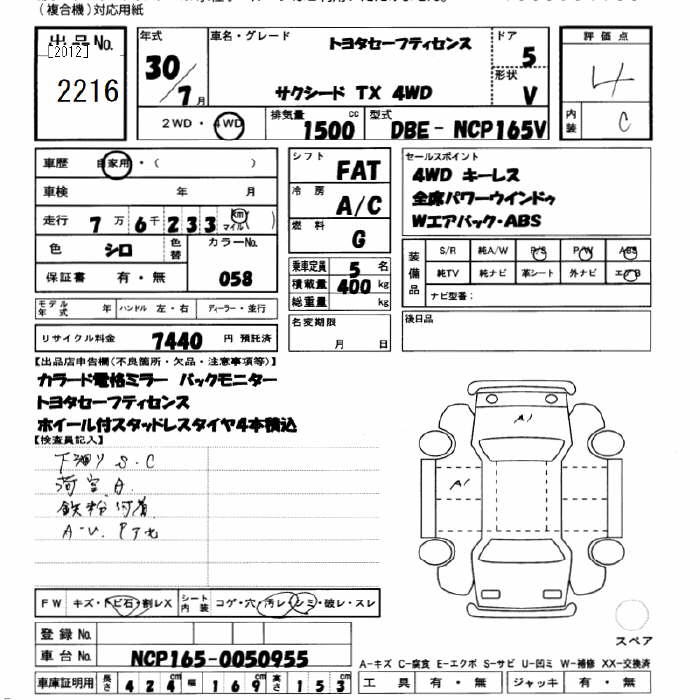 (複合機)対応用紙
出品No.
[2012]
2216
年式
30
7月
車名・グレード
トヨタセーフティセンス
サクシード TX 4WD
ドア
5
形状
V
2WD・4WD
排気量
1500 cc
型式
DBE-NCP165V
評価点
4
内装
C
車歴 自家用・( )
車検 年 月
走行 7万6千233 km マイル( )
色 シロ 色替 カラーNo.
保証書 有・無 058
モデル年式 年 ハンドル 左・右 ディーラー・並行
リサイクル料金 7440 円 預託済
シフト
FAT
冷房
A/C
燃料
G
乗車定員 5 名
積載量 400 kg
総重量 kg
名変期限
月 日
セールスポイント
4WD キーレス
全席パワーウインドゥ
Wエアバック・ABS
装備品
S/R 純A/W P/S P/W ABS
純TV 純ナビ 革シート 外ナビ エアB
ナビ型番:
後日品
【出品店申告欄(不良箇所・欠品・注意事項等)】
カラード電格ミラー バックモニター
トヨタセーフティセンス
ホイール付スタッドレスタイヤ4本積込
【検査員記入】
下廻り S.C
荷室 A
鉄粉付着
A-U.
A1
A1
FW キズ・トビ石・割レX シート内装 コゲ・穴・汚レ・シミ・破レ・スレ
登録No.
車台No. NCP165-0050955
車庫証明用 長さ 424 cm 幅 169 cm 高さ 153 cm
スペア
A-キズ C-腐食 E-エクボ S-サビ U-凹ミ W-補修 XX-交換済
工具 有・無 ジャッキ 有・無